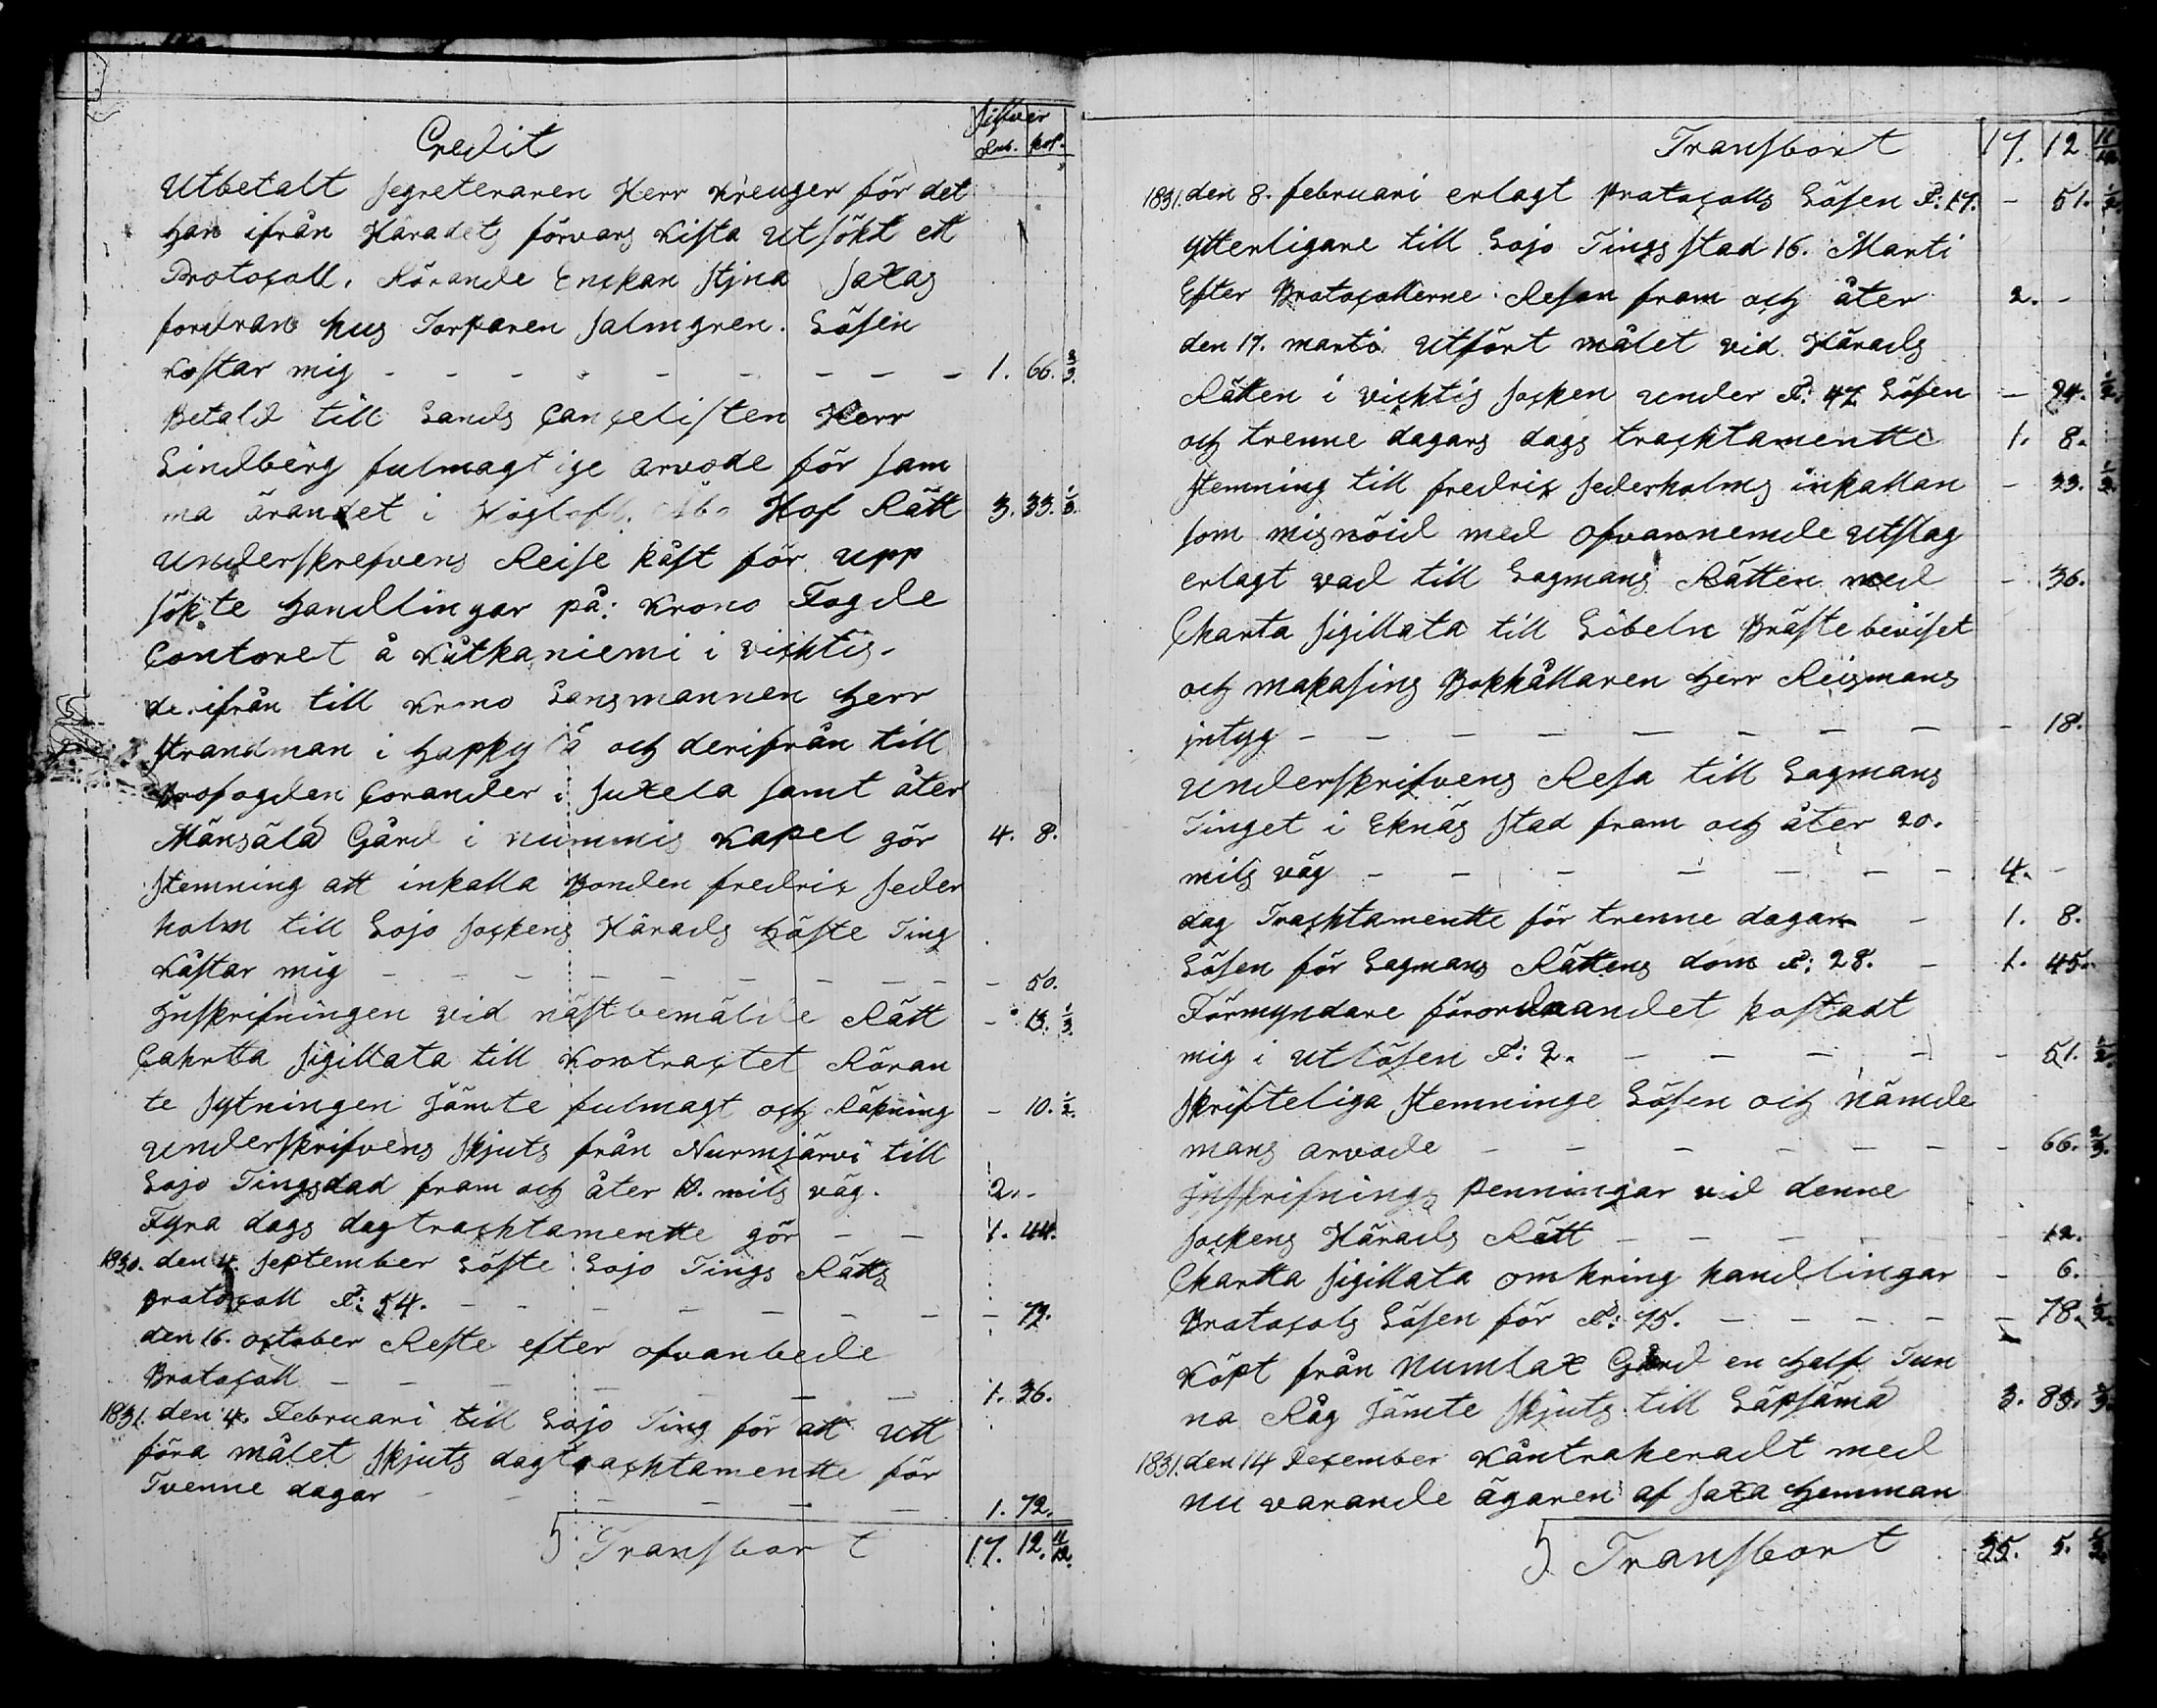 Silfver
Credit Rub. kop.
Utbetalt Segreteraren Herr Kreuger för det
han ifrån Häradets förvars kista utsökt ett
Protocoll. Rörande Enckan Stjna Saxas
fordran hus Torparen Salmgren. Lösen
kostar mig - - - - - - - - - 1. 66. 2/3.
Betald till Lands Cancelisten Herr
Lindberg fulmagtige arvode för sam
ma ärandet i Höglofl. Åbo Hof Rätt 3. 33. 1/3.
Underskrefvens Reise kåst för upp
sökte handlingar på: Krono Fogde
Contoret å Kutkaniemi i Vichtis.
derifrån till Krono Lansmannen Herr
Strandman i Happylä och derifrån till
Profogden Corander i Suxela samt åter
Mänsälä Gård i Nummis Kapel gör 4. 8.
Stemning att inkalla Bonden fredric Seder
holm till Lojo Sockens Härads Höste Ting
kåstar mig - - - - - - - - - 50.
Inskrifningen vid näst bemälde Rätt - 13. 1/3.
Cahrtta Sigillata till Kontractet Röran
te Sytningen jämte fulmagt och Räkning - 10. 1/2.
Underskrifvens Skjuts från Nurmijärvi till
Lojo Tingsdad fram och åter 10. mils väg. 2. -
Fyra dags dagtrachtamentte gör - - 1. 44.
1830. den 4. September Löste Lojo Tings Rätts
protocoll №: 54. - - - - - - - 72.
den 16. october Reste efter ofvanbede
Protocoll - - - - - - 1. 36.
1831. den 4. Februari till Lojo Ting för att utt
föra målet Skjuts dagtrachtamentte för
Tvenne dagar - - - - - - 1. 72.
Transport 17. 12. 11/12.
Transport 17. 12 11/12
1831. den 8. februari erlagt Protocolls Lösen №: 17. - 51. 1/2.
ytterligare till Lojo Tings stad 16. Marti
Efter Protocollerne. Resan fram och åter 2. -
den 17. marti utfört målet vid Härads
Rätten i vichtis socken under №: 47 Lösen - 24. 1/2.
och trenne dagars dags trachtamentte 1. 8.
Stemning till fredric Sederholms inkallan - 33. 1/3.
som misnöid med ofvannemde utslag
erlagt vad till Lagmans Rätten med - 36.
Charta Sigillata till Libeln Präste beviset
och makasins Bokhållaren Herr Reismans
jntyg - - - - - - - - - 18.
Underskrifvens Resa till Lagmans
Tinget i Eknäs stad fram och åter 20.
mils väg - - - - - - - 4. -
dag Trachtamentte för trenne dagar - 1. 8.
Lösen för Lagmans Rättens dom №: 28. - 1. 45.
Förmyndare förordnandet kostadt
mig i utlösen №: 2. - - - - - 51. 1/2.
Skrifteliga Stemninge Lösen och Nämde
mans arvode - - - - - - - 66. 2/3.
Jnskrifnings penningar vid denne
Sockens Härads Rätt - - - - - 12.
Chartta Sigillata omkring handlingar - 6.
Protocols Lösen för №: 95. - - - - - 78. 1/2.
Köpt från Numlax Gård en half Tun
na Råg jämte Skjuts till Läpsämä 3. 83. 1/3.
1831. den 14 December kåntraheradt med
nu varande ägaren af Saxa Hemman
Transport 35. 5. 1/2.